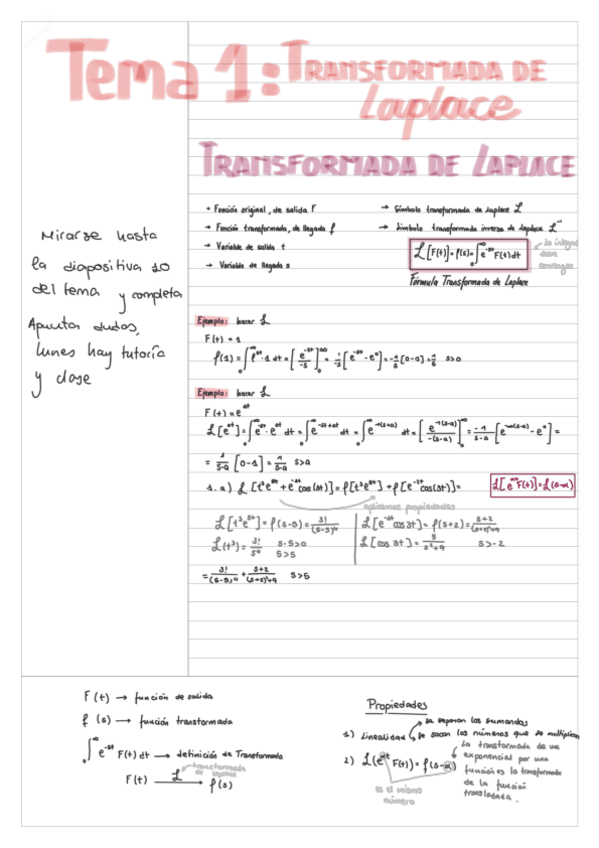 Tema 1: TRANSFORMADA DE
Laplace
TRANSFORMADA DE LAPLACE
• Función original, de salida F
→ Función transformada, de llegada f
→ Variable de salida t
→ Variable de llegada s
→ Símbolo transformada de Laplace ℒ
→ Símbolo transformada inversa de Laplace ℒ⁻¹
ℒ[F(t)] = f(s) = ∫₀^∞ e^-st F(t) dt
La integral
debe
converger
Fórmula Transformada de Laplace
Mirarse hasta
la diapositiva 10
del tema y completa
Apuntar dudas,
lunes hay tutoría
y clase
Ejemplo: hacer ℒ
F(t) = 1
f(1) = ∫₀^∞ e^-st · 1 dt = [e^-st/-s]₀^∞ = 1/-s [e^-∞ - e^0] = -1/s [0-1] = 1/s s>0
Ejemplo: hacer ℒ
F(t) = e^at
ℒ[e^at] = ∫₀^∞ e^-st · e^at dt = ∫₀^∞ e^-st+at dt = ∫₀^∞ e^-t(s-a) dt = [e^-t(s-a)/-(s-a)]₀^∞ = -1/s-a [e^-∞(s-a) - e^0] =
= -1/s-a [0-1] = 1/s-a s>a
1.a) ℒ[t³e^5t + e^-2t cos(3t)] = f[t³e^5t] + f[e^-2t cos(3t)] =
ℒ[e^αt F(t)] = ℒ(s-α)
aplicamos propiedades
ℒ[t³e^5t] = f(s-5) = 3!/(s-5)⁴
ℒ(t³) = 3!/s⁴ s-5>0
s>5
ℒ[e^-2t cos 3t] = f(s+2) = s+2/(s+2)²+9
ℒ[cos 3t] = s/s²+9 s>-2
= 3!/(s-5)⁴ + s+2/(s+2)²+9 s>5
F(t) → función de salida
f(s) → función transformada
∫₀^∞ e^-st F(t) dt → definición de Transformada
transformada
de Laplace
F(t) ℒ→ f(s)
Propiedades
se separan los sumandos
1) Linealidad se sacan los números que se multiplican
2) ℒ(e^αt F(t)) = f(s-α)
es el mismo
número
La transformada de un
exponencial por una
función es la transformada
de la función
trasladada.